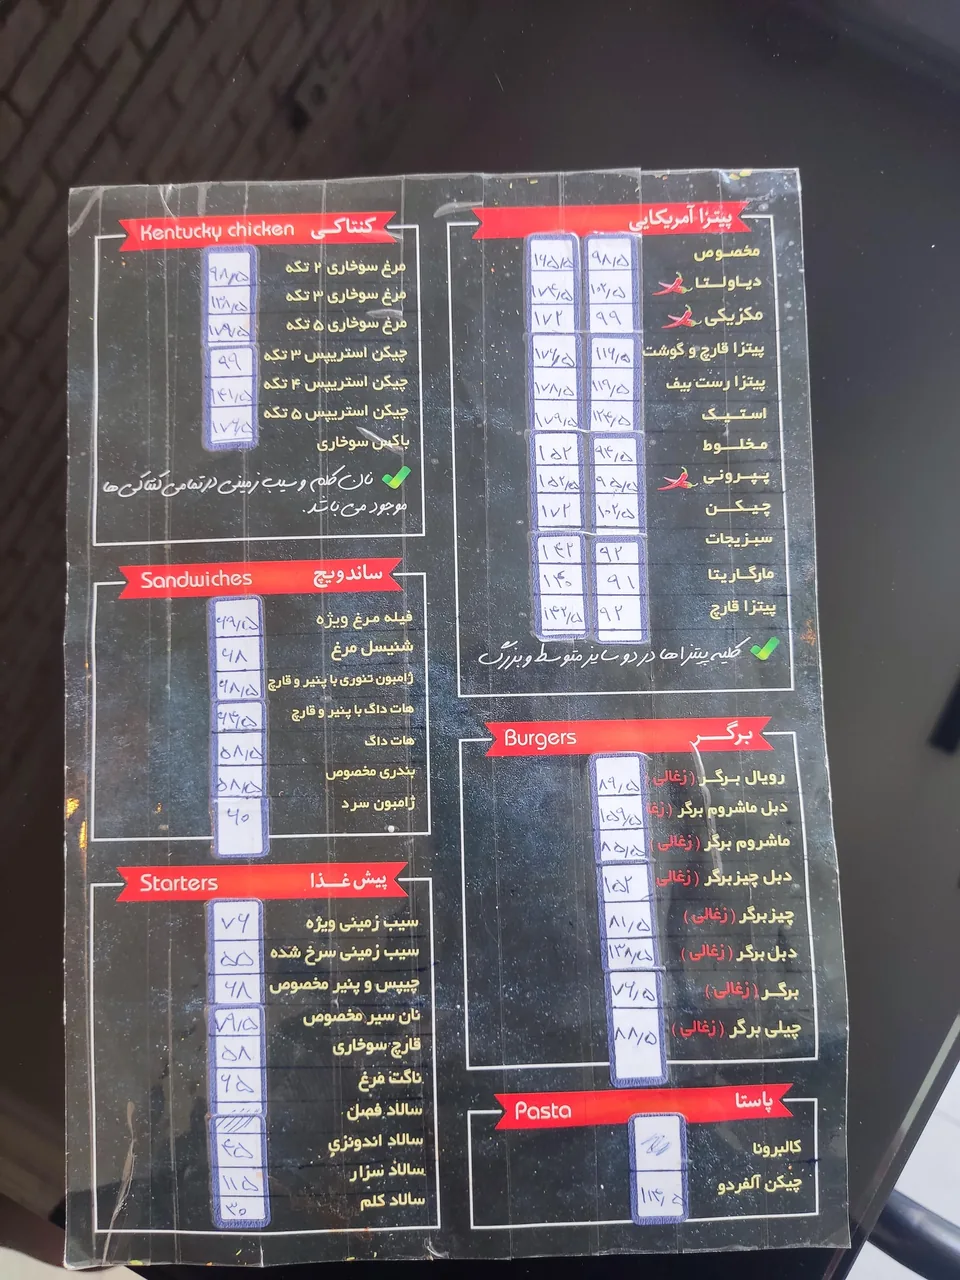 پیتزا آمریکایی
مخصوص ۹۸/۵ ۱۶۵/۵
دیاولتا ۱۰۲/۵ ۱۷۴/۵
مکزیکی ۹۹ ۱۷۲
پیتزا قارچ و گوشت ۱۱۶/۵ ۱۷۶/۵
پیتزا رست بیف ۱۱۹/۵ ۱۷۸/۵
استیک ۱۲۴/۵ ۱۷۹/۵
مخلوط ۹۴/۵ ۱۵۲
پپرونی ۹۵/۵ ۱۵۲/۵
چیکن ۱۰۲/۵ ۱۷۲
سبزیجات ۹۲ ۱۴۲
مارگاریتا ۹۱ ۱۴۰
پیتزا قارچ ۹۲ ۱۴۲/۵
کلیه پیتزاها در دو سایز متوسط و بزرگ
برگر Burgers
رویال برگر (زغالی) ۸۹/۵
دبل ماشروم برگر ۱۵۹/۵
ماشروم برگر (زغالی) ۸۵/۵
دبل چیزبرگر (زغالی) ۱۵۲
چیزبرگر (زغالی) ۸۱/۵
دبل برگر (زغالی) ۱۳۸/۵
برگر (زغالی) ۷۶/۵
چیلی برگر (زغالی) ۸۸/۵
پاستا Pasta
کالبرونا
چیکن آلفردو ۱۱۴/۵
کنتاکی Kentucky chicken
مرغ سوخاری ۲ تکه ۹۸/۵
مرغ سوخاری ۳ تکه ۱۳۸/۵
مرغ سوخاری ۵ تکه ۱۷۹/۵
چیکن استریپس ۳ تکه ۹۹
چیکن استریپس ۴ تکه ۱۴۱/۵
چیکن استریپس ۵ تکه ۱۷۶/۵
باکس سوخاری
نان کلم و سیب زمینی در تمامی کنتاکی ها
موجود می باشد.
ساندویچ Sandwiches
فیله مرغ ویژه ۶۹/۵
شنیسل مرغ ۶۸
ژامبون تنوری با پنیر و قارچ ۶۸/۵
هات داگ با پنیر و قارچ ۶۴/۵
هات داگ ۵۸/۵
بندری مخصوص ۵۸/۵
ژامبون سرد ۶۰
پیش غذا Starters
سیب زمینی ویژه ۷۶
سیب زمینی سرخ شده ۵۵
چیپس و پنیر مخصوص ۶۸
نان سیر مخصوص ۷۹/۵
قارچ سوخاری ۵۸
ناگت مرغ ۶۵
سالاد فصل
سالاد اندونزی ۴۵
سالاد سزار ۱۱۵
سالاد کلم ۳۰